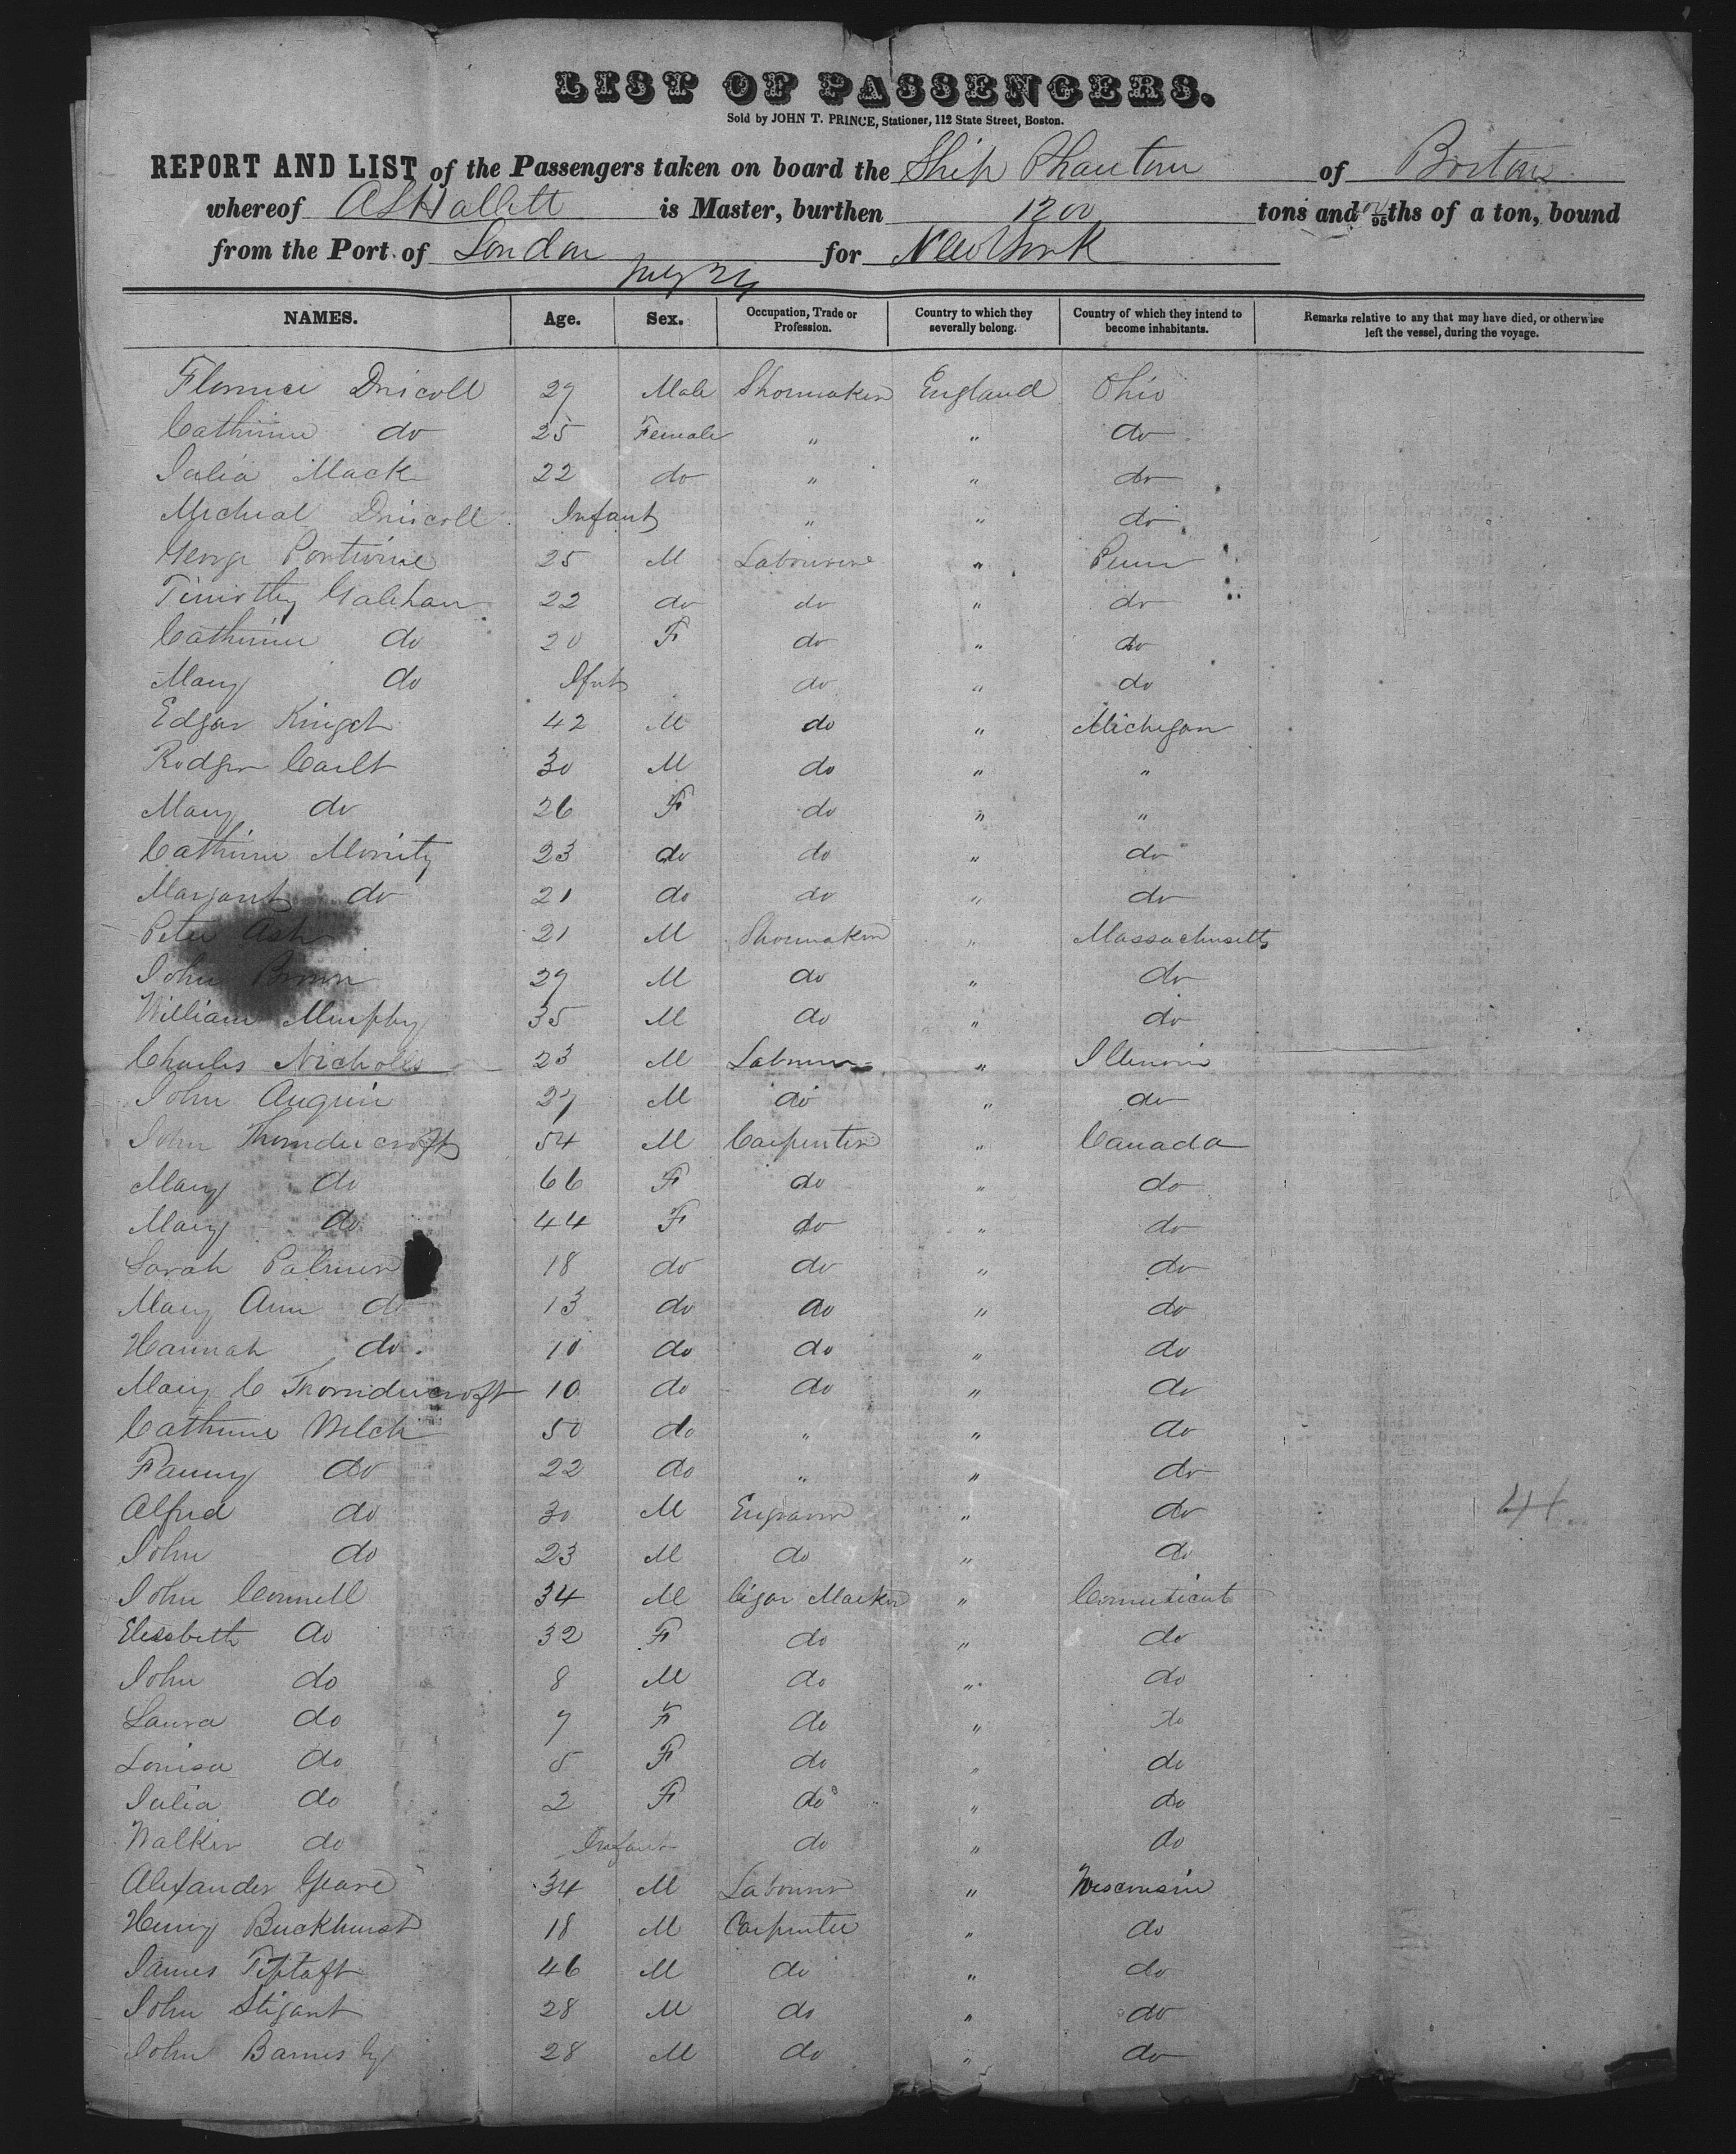 LIST OF PASSENGERS.
Sold by JOHN T. PRINCE, Stationer, 112 State Street, Boston.
REPORT AND LIST of the Passengers taken on board the Ship Phantom of Boston
whereof A S Hallett is Master, burthen 1200 tons and 95ths of a ton, bound
from the Port of London for New York
July 24
NAMES. Age. Sex. Occupation, Trade or Profession. Country to which they severally belong. Country of which they intend to become inhabitants. Remarks relative to any that may have died, or otherwise left the vessel, during the voyage.
Driscoll 27 Male Shoumaker England Ohio
Catherine do 25 Female " " do
Julia Mack 22 do " " do
Micheal Driscoll Infant " " do
George 25 M " Penn
Timothy Galehan 22 do do " do
Catherine do 20 F do " do
Mary do Ifnt do " do
Edgar 42 M do " Michegan
Rodger 30 M do " "
Mary do 26 F do " "
Catherine Morrity 23 do do " do
Margaret do 21 do do " do
Peter Ash 21 M Shoumaker " Massachusetts
John Brown 27 M do " do
William Murphy 35 M do " do
Charles Nicholls 23 M Labourer " Illenois
John Auguin 27 M do " do
John Thorndercroft 54 M Carpenter " Canada
Mary do 66 F do " do
Mary do 44 F do " do
Sarah Palmer 18 do do " do
Mary Ann do 13 do do " do
Hannah do 10 do do " do
Mary C Thorndercroft 10 do do " do
Catherine Welch 50 do " " do
Fanny do 22 do " " do
Alfred do 30 M Engraver " do
John do 23 M do " do
John Connell 34 M Cigar Marker " Connecticut
Elesebeth do 32 F do " do
John do 8 M do " do
Laura do 7 F do " do
Louisa do 5 F do " do
Julia do 2 F do " do
Walker do Infant do " do
Alexander Geare 34 M Labourer " Wisconsin
Henry Buckhurst 18 M Carpenter " do
James Tiptaft 46 M do " do
John Stigant 28 M do " do
John Barnesby 28 M do " do
41